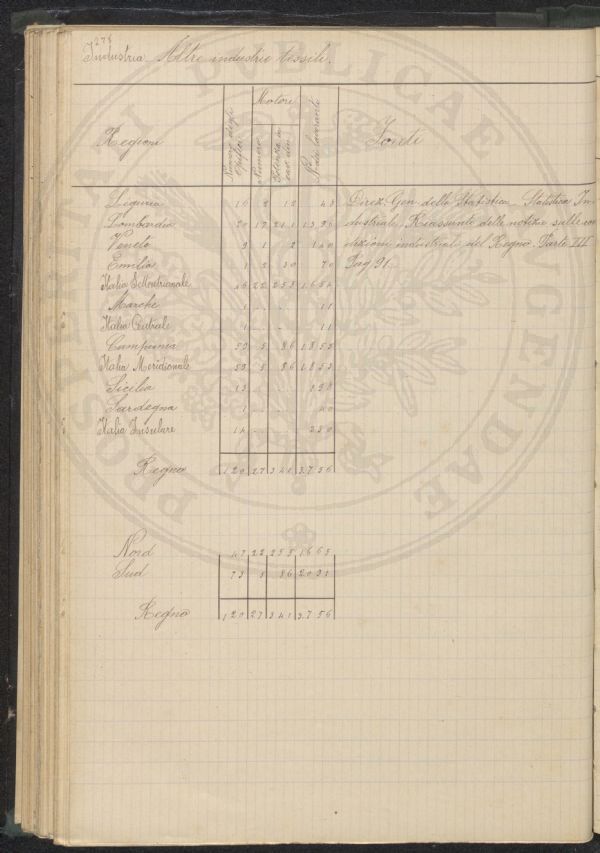 278
Industria Altre industrie tessili.
Regioni Numero degli Opifici Motori Numero Potenza in cav. din. N. dei lavoranti Fonti
Liguria 16 2 12 48 Direz. Gen. della Statistica - Statistica In-
Lombardia 20 17 211 1396 dustriale, Riassunto delle notizie sulle con
Veneto 9 1 2 140 dizioni industriali del Regno. Parte III
Emilia 1 2 30 70 Pag 91.
Italia Settentrionale 46 22 255 1654
Marche 1 . . 11
Italia Centrale 1 . . 11
Campania 59 5 86 1853
Italia Meridionale 59 5 86 1853
Sicilia 13 . . 198
Sardegna 1 . . 40
Italia Insulare 14 . . 238
Regno 120 27 341 3756
Nord 47 22 255 1665
Sud 73 5 86 2091
Regno 120 27 341 3756
PROSPERITATI PUBLICAE AUGENDAE